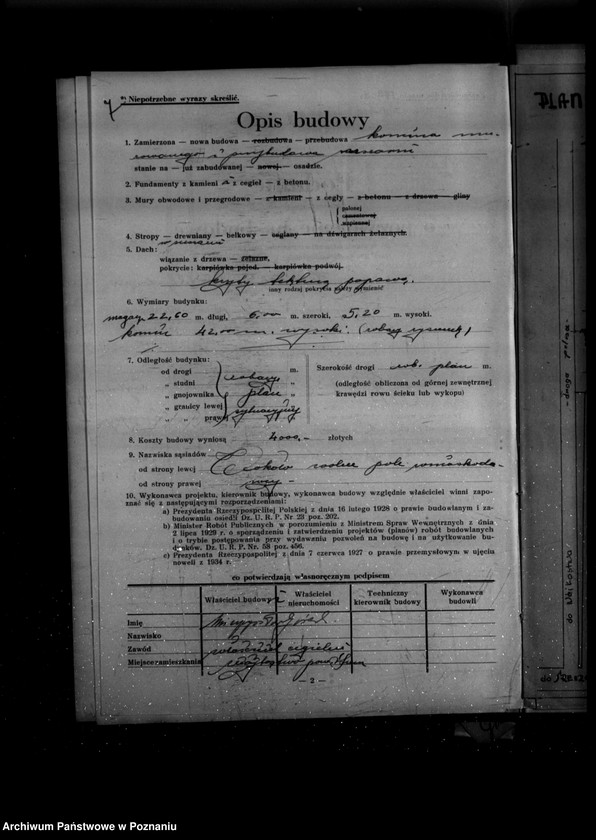 *) Niepotrzebne wyrazy skreślić.
Opis budowy
1. Zamierzona — nowa budowa — rozbudowa — przebudowa komina mu-
rowanego i
stanie na — już zabudowanej — nowej — osadzie.
2. Fundamenty z kamieni z cegieł — z betonu.
3. Mury obwodowe i przegrodowe — z kamieni — z cegły — z betonu — z drzewa — gliny
palonej
4. Stropy — drewniany — belkowy — ceglany — na dźwigarach żelaznych.
5. Dach:
wiązanie z drzewa — żelazne,
pokrycie: karpiówka pojed. — karpiówka podwój.
kryty tekturą papową.
inny rodzaj pokrycia należy wymienić
6. Wymiary budynku:
magaz. 22,60 m. długi, 6,00 m. szeroki, 5,20 m. wysoki.
komin 42.00 m. wysoki. (zobacz rysunek)
7. Odległość budynku:
od drogi m.
„ studni „
„ gnojownika „
„ granicy lewej „
„ „ prawej „
zobacz
plan
sytuacyjny
Szerokość drogi zob. plan m.
(odległość obliczona od górnej zewnętrznej
krawędzi rowu ścieku lub wykopu)
8. Koszty budowy wyniosą 4000,- złotych
9. Nazwiska sąsiadów
od strony lewej wolne pole
od strony prawej
10. Wykonawca projektu, kierownik budowy, wykonawca budowy względnie właściciel winni zapo-
znać się z następującymi rozporządzeniami:
a) Prezydenta Rzeczypospolitej Polskiej z dnia 16 lutego 1928 o prawie budowlanym i za-
budowaniu osiedli Dz. U. R. P. Nr 23 poz. 202.
b) Minister Robót Publicznych w porozumieniu z Ministrem Spraw Wewnętrznych z dnia
2 lipca 1929 o sporządzeniu i zatwierdzeniu projektów (planów) robót budowlanych
i o trybie postępowania przy wydawaniu pozwoleń na budowę i na użytkowanie bu-
dynków, Dz. U. R. P. Nr 58 poz. 456.
c) Prezydenta Rzeczypospolitej z dnia 7 czerwca 1927 o prawie przemysłowym w ujęciu
noweli z 1934 r.
co potwierdzają własnoręcznym podpisem
Właściciel budowy
Właściciel nieruchomości
Techniczny kierownik budowy
Wykonawca budowli
Imię
Nazwisko
Zawód właściciel cegielni
Miejsce zamieszkania
— 2 —
PLAN
droga polna
do
Archiwum Państwowe w Poznaniu